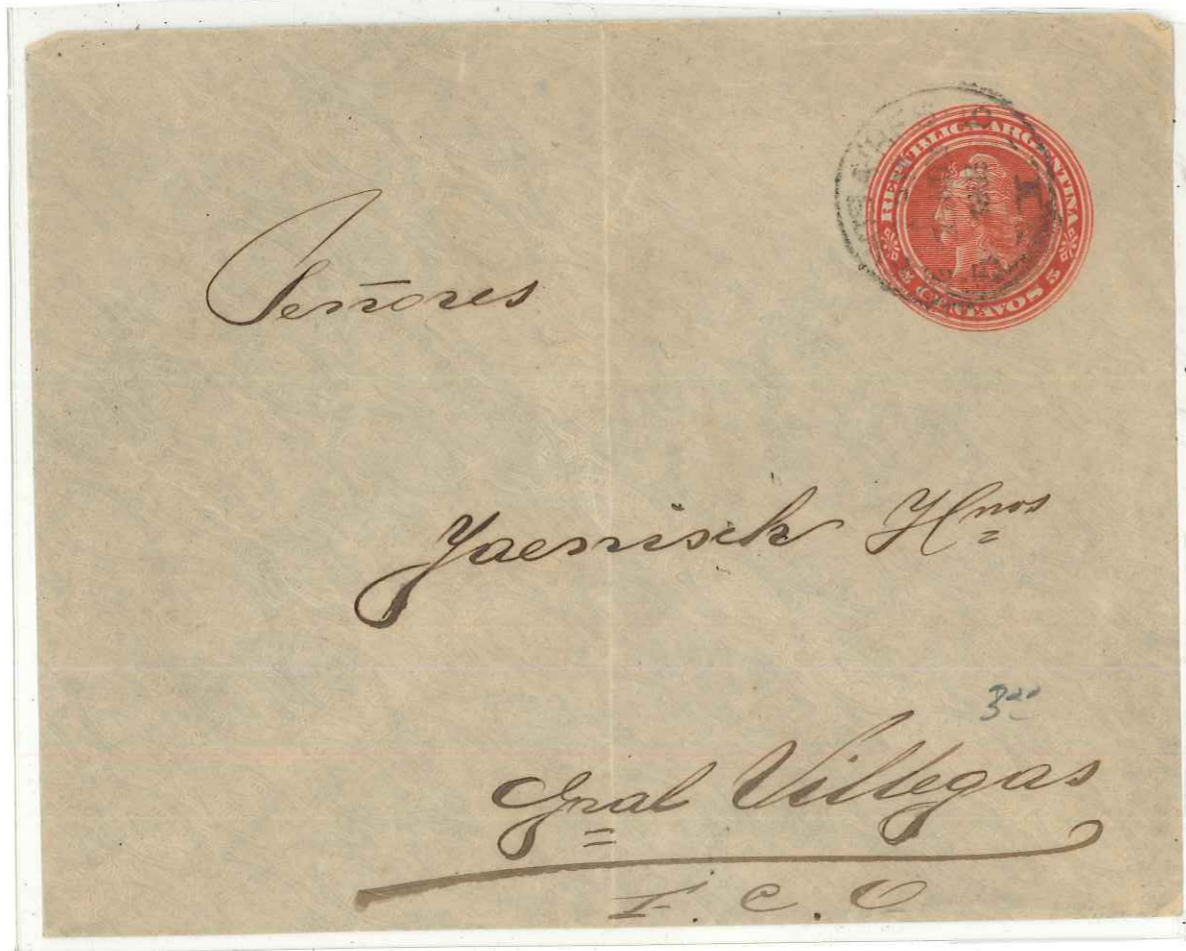 REPUBLICA ARGENTINA
5 CENTAVOS 5
Señores
Jaenisch Hnos
3 00
Gral Villegas
F. C. O